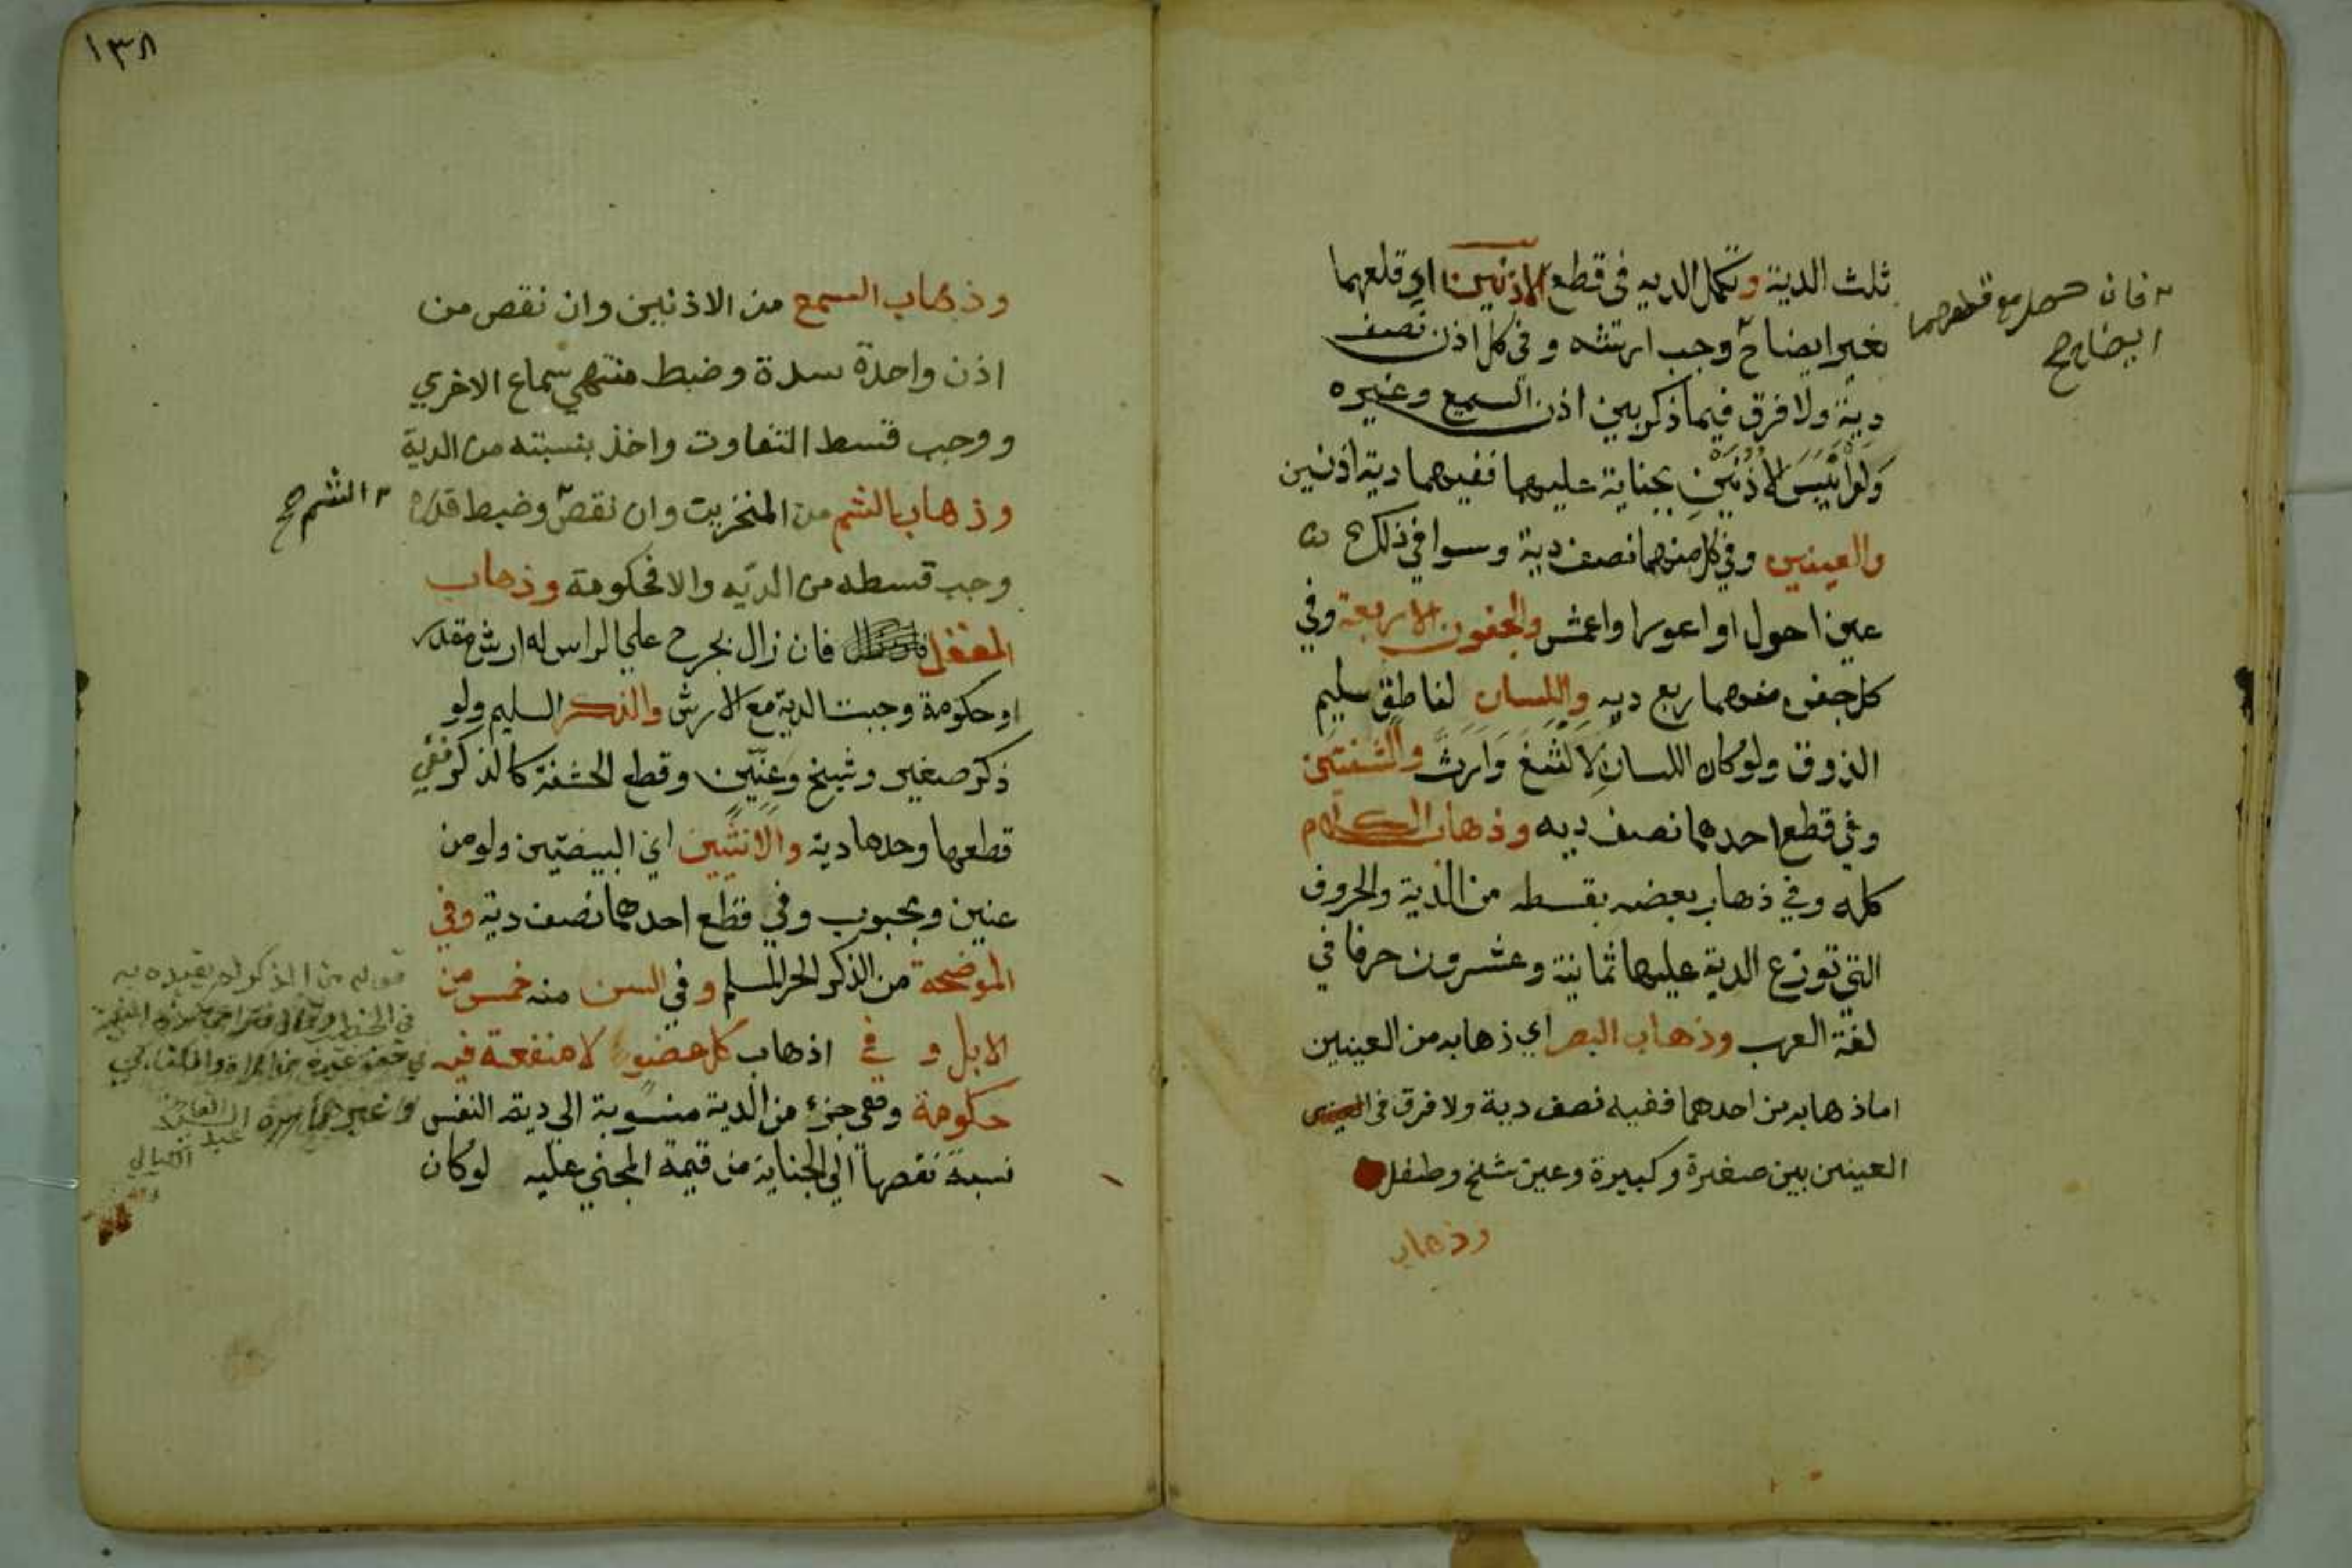 ثلث الدية وتكمل الديه فى قطع الاذنين اي قلعهما
بغير ايضاح وجب ارشه وفي كل اذن نصف
دية ولا فرق فيما ذكر بين اذن السميع وغيره
ولو ايبس الاذنين بجناية عليهما ففيهما دية اذنين
والعينين وفي كل منهما نصف دية وسوا في ذلك
عين احول او اعور او اعمش والجفون الاربعة وفي
كل جفن منهما ربع ديه واللسان لناطق سليم
الذوق ولو كان اللسان لالثغ وارث والشفتين
وفي قطع احدهما نصف ديه وذهاب الكلام
كله وفي ذهاب بعضه بقسطه من الدية والحروف
التي توزع الدية عليها ثمانية وعشرون حرفا في
لغة العرب وذهاب البصر اي ذهابه من العينين
اما ذهابه من احدهما ففيه نصف دية ولا فرق فى
العينين بين صغيرة وكبيرة وعين شيخ وطفل
وذهاب
فان حصل مع قلعهما
ايضاح صح
١٣٨
وذهاب السمع من الاذنين وان نقص من
اذن واحدة سدة وضبط منتهي سماع الاخري
ووجب قسط التفاوت واخذ بنسبته من الدية
وذهاب الشم من المنخرين وان نقص وضبط قدره
وجب قسطه من الديه والا فحكومة وذهاب
العقل فان زال بجرح علي الراس له ارش مقدر
او حكومة وجبت الدية مع الارش والذكر السليم ولو
ذكر صغير وشيخ وعنين وقطع الحشفة كالذكر ففي
قطعها وحدها دية والانثيين اي البيضتين ولو من
عنين ومجبوب وفي قطع احدهما نصف دية وفي
الموضحة من الذكر الحر المسلم وفي السن منه خمس من
الابل و في اذهاب كل عضو لا منفعة فيه
حكومة وهي جزء من الدية منسوبة الي دية النفس
نسبة نقصها اي الجناية من قيمة المجني عليه لو كان
الشم صح
قوله من الذكر لم يقيده به